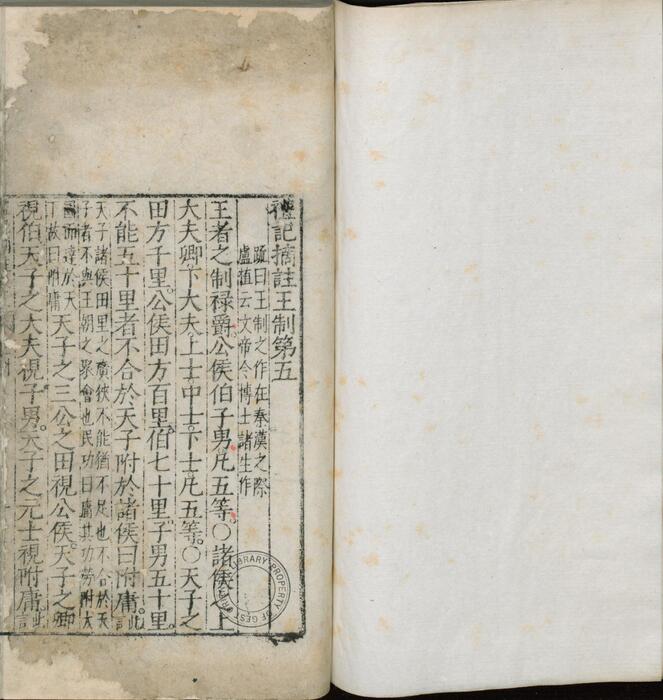 禮記摘註王制第五
疏曰王制之作在秦漢之際
盧植云文帝令博士諸生作
王者之制祿爵公侯伯子男凡五等○諸侯之上
大夫卿下大夫上士中士下士凡五等○天子之
田方千里公侯田方百里伯七十里子男五十里
不能五十里者不合於天子附於諸侯曰附庸此
天子諸侯田里之廣狹不能猶不足也不合於天
子者不與王朝之聚會也民功曰庸其功勞附大
國而達於天
故曰附庸
天子之三公之田視公侯天子之卿
視伯天子之大夫視子男天子之元士視附庸此
LIBRARY·PROPERTY OF GEST